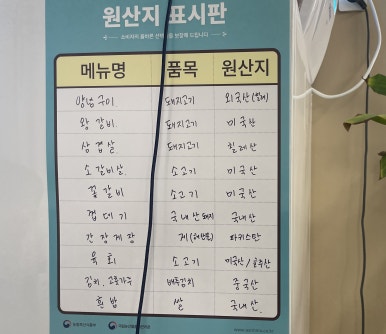 원산지 표시판
소비자의 올바른 선택을 보장해 드립니다
메뉴명 품목 원산지
양념구이 돼지고기 외국산(칠레)
왕갈비 돼지고기 미국산
삼겹살 돼지고기 칠레산
소갈비살 소고기 미국산
꽃갈비 소고기 미국산
껍데기 국내산 돼지 국내산
간장게장 게 파키스탄
육회 소고기 미국산/호주산
김치, 고춧가루 배추김치 중국산
흰밥 쌀 국내산